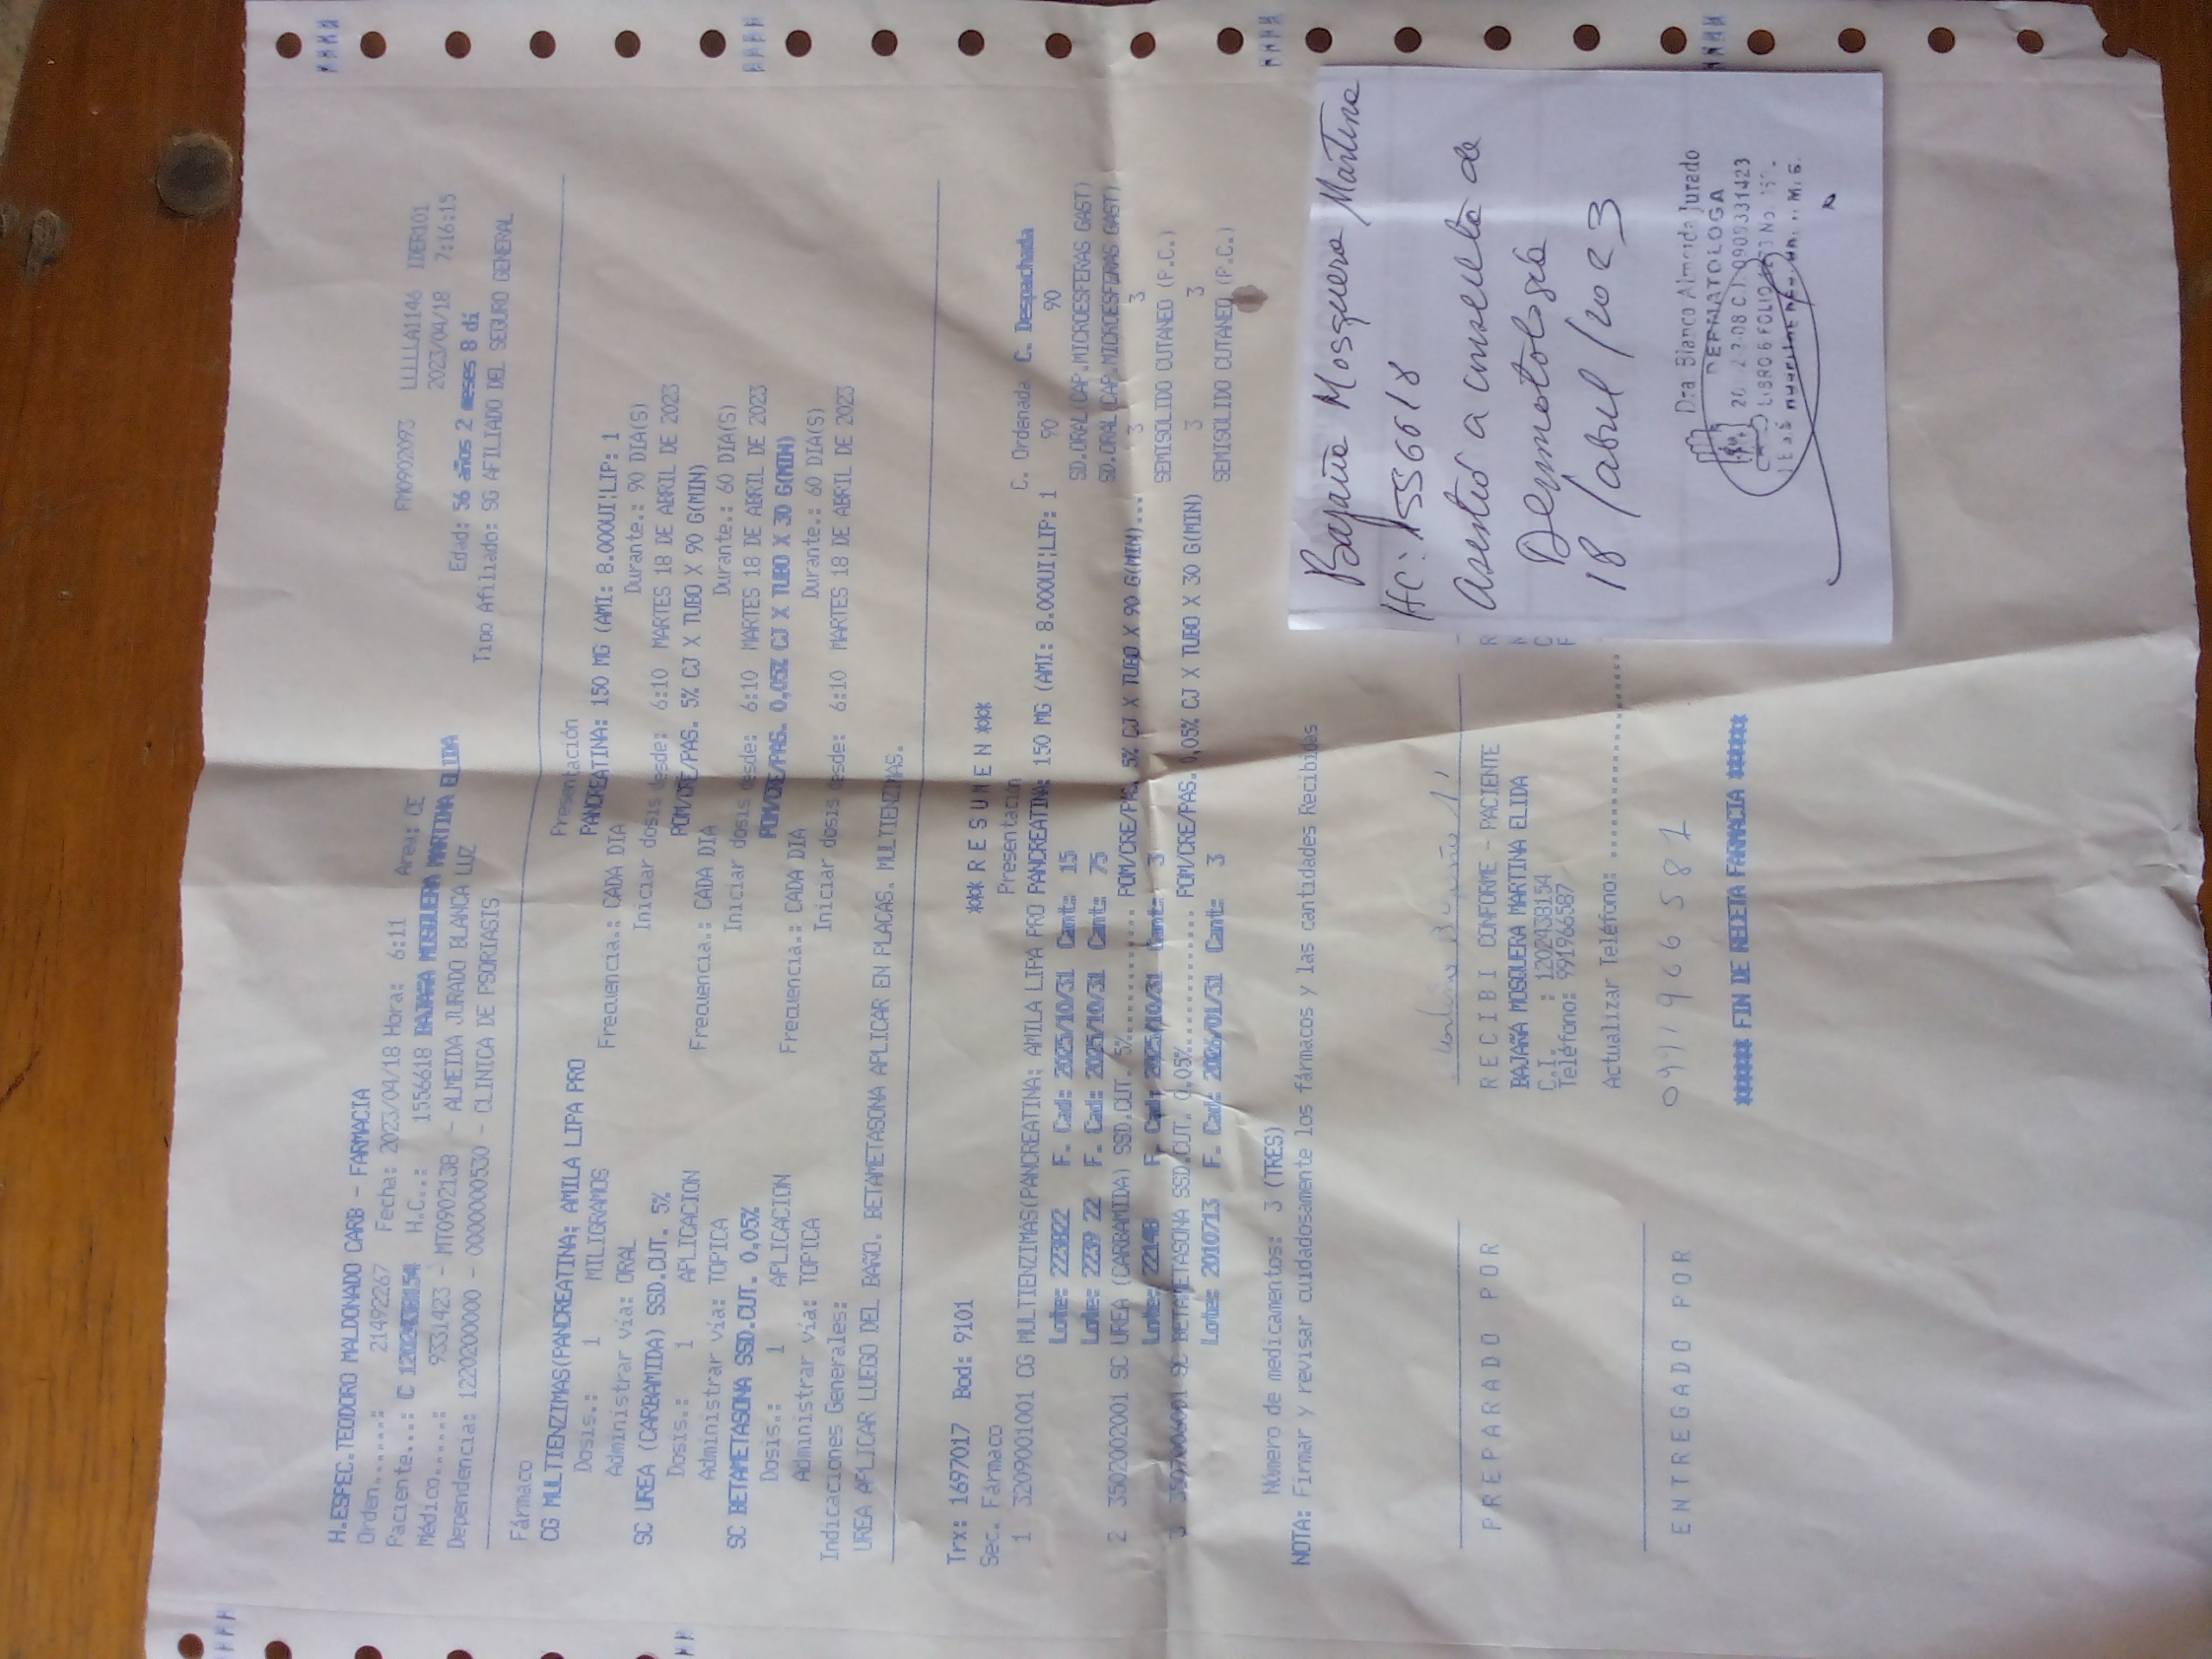 H.ESPEC.TEODORO MALDONADO CARB - FARMACIA FM0902093 LLLLLA1146 IDER101
Orden.......: 21492267 Fecha: 2023/04/18 Hora: 6:11 Area: CE 2023/04/18 7:16:15
Paciente...: C 1202438154 H.C..: 1556618 BAJAÑA MOSQUERA MARTINA ELIDA Edad: 56 años 2 meses 8 di
Médico.......: 9331423 - MT0902138 - ALMEIDA JURADO BLANCA LUZ Tipo Afiliado: SG AFILIADO DEL SEGURO GENERAL
Dependencia: 1220200000 - 0000000530 - CLINICA DE PSORIASIS
Fármaco Presentación
CG MULTIENZIMAS(PANCREATINA; AMILA LIPA PRO PANCREATINA: 150 MG (AMI: 8.000UI;LIP: 1
Dosis.: 1 MILIGRAMOS Frecuencia.: CADA DIA Durante.: 90 DIA(S)
Administrar vía: ORAL Iniciar dosis desde: 6:10 MARTES 18 DE ABRIL DE 2023
SC UREA (CARBAMIDA) SSD.CUT. 5% POM/CRE/PAS. 5% CJ X TUBO X 90 G(MIN)
Dosis.: 1 APLICACION Frecuencia.: CADA DIA Durante.: 60 DIA(S)
Administrar vía: TOPICA Iniciar dosis desde: 6:10 MARTES 18 DE ABRIL DE 2023
SC BETAMETASONA SSD.CUT. 0,05% POM/CRE/PAS. 0,05% CJ X TUBO X 30 G(MIN)
Dosis.: 1 APLICACION Frecuencia.: CADA DIA Durante.: 60 DIA(S)
Administrar vía: TOPICA Iniciar dosis desde: 6:10 MARTES 18 DE ABRIL DE 2023
Indicaciones Generales:
UREA APLICAR LUEGO DEL BAÑO. BETAMETASONA APLICAR EN PLACAS. MULTIENZIMAS.
Trx: 1697017 Bod: 9101 *** R E S U M E N ***
Sec. Fármaco Presentación C. Ordenada C. Despachada
1 3209001001 CG MULTIENZIMAS(PANCREATINA; AMILA LIPA PRO PANCREATINA: 150 MG (AMI: 8.000UI;LIP: 1 90 90
Lote: 223822 F. Cad: 2025/10/31 Cant: 15 SD.ORAL(CAP.MICROESFERAS GAST)
Lote: 2239 22 F. Cad: 2025/10/31 Cant: 75 SD.ORAL(CAP.MICROESFERAS GAST)
2 3502002001 SC UREA (CARBAMIDA) SSD.CUT. 5%............ POM/CRE/PAS. 5% CJ X TUBO X 90 G(MIN)... 3 3
Lote: 22148 F. Cad: 2025/10/31 Cant: 3 SEMISOLIDO CUTANEO (P.C.)
3 SC BETAMETASONA SSD.CUT. 0,05%............ POM/CRE/PAS. 0,05% CJ X TUBO X 30 G(MIN) 3 3
Lote: 2010713 F. Cad: 2026/01/31 Cant: 3 SEMISOLIDO CUTANEO (P.C.)
Número de medicamentos: 3 (TRES)
NOTA: Firmar y revisar cuidadosamente los fármacos y las cantidades Recibidas
P R E P A R A D O P O R
R E C I B I CONFORME - PACIENTE
BAJAÑA MOSQUERA MARTINA ELIDA
C.I. : 1202438154
Teléfono: 991966587
Actualizar Teléfono: ......................
E N T R E G A D O P O R
0991966587
****** FIN DE RECETA FARMACIA ******
R
N
C
F
Bajaña Mosquera Martina
HC: 1556618
Asistió a consulta de
Dermatología
18/abril/2023
Dra Blanca Almeida Jurado
DERMATOLOGA
C.I. 0909331423
LIBRO 6 FOLIO